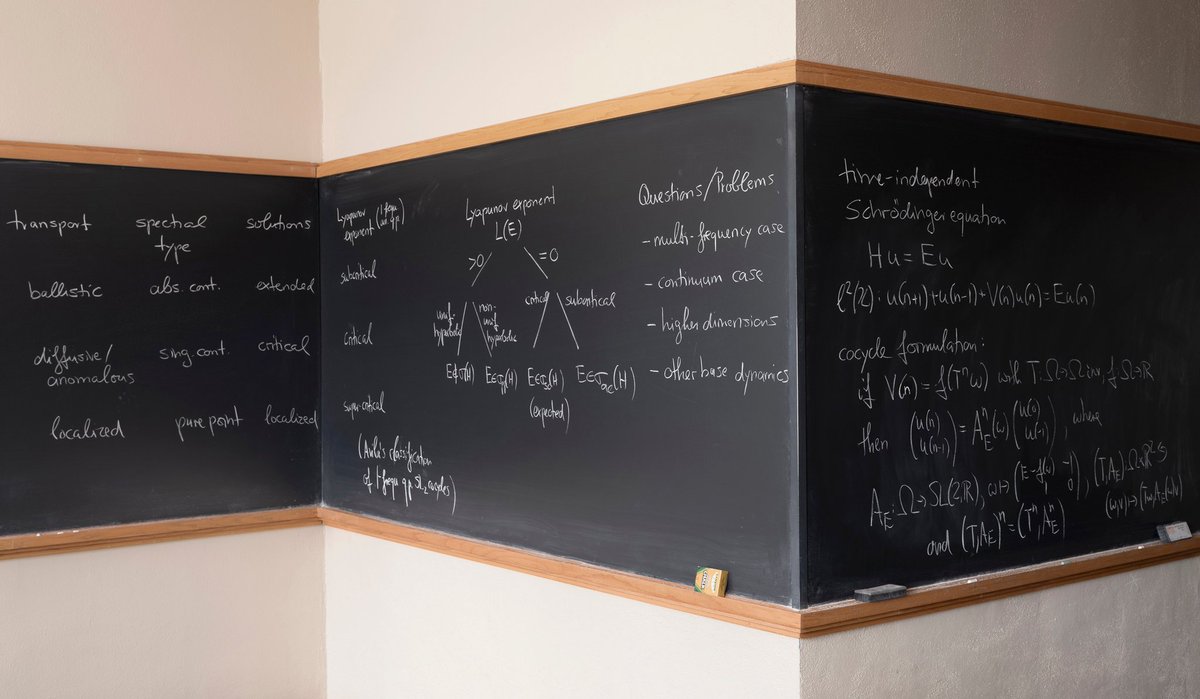 transport spectral type solutions
ballistic abs. cont. extended
diffusive/ anomalous sing. cont. critical
localized pure point localized
Lyapunov
exponent (1-frequ.
subcritical
critical
supercritical
(Avila's classification
of 1-frequ. qp SL₂ cocycles)
Lyapunov exponent
L(E)
>0 =0
unif. hyperbolic non-unif. hyperbolic critical subcritical
E∉σ(H) E∈σpp(H) E∈σsc(H) E∈σac(H)
(expected)
Questions/Problems
- multi-frequency case
- continuum case
- higher dimensions
- other base dynamics
time-independent
Schrödinger equation
Hu = Eu
ℓ²(ℤ): u(n+1)+u(n-1)+V(n)u(n)=Eu(n)
cocycle formulation:
if V(n) = f(Tⁿω) with T:Ω→Ω inv., f:Ω→ℝ
then (u(n) u(n-1)) = A_Eⁿ(ω) (u(0) u(-1)), where
A_E:Ω→SL(2,ℝ), ω↦(E-f(ω) -1 1 0), (T,A_E):Ω×ℝ²↺
(ω,v)↦(Tω,A_E(ω)v)
and (T,A_E)ⁿ=(Tⁿ,A_Eⁿ)